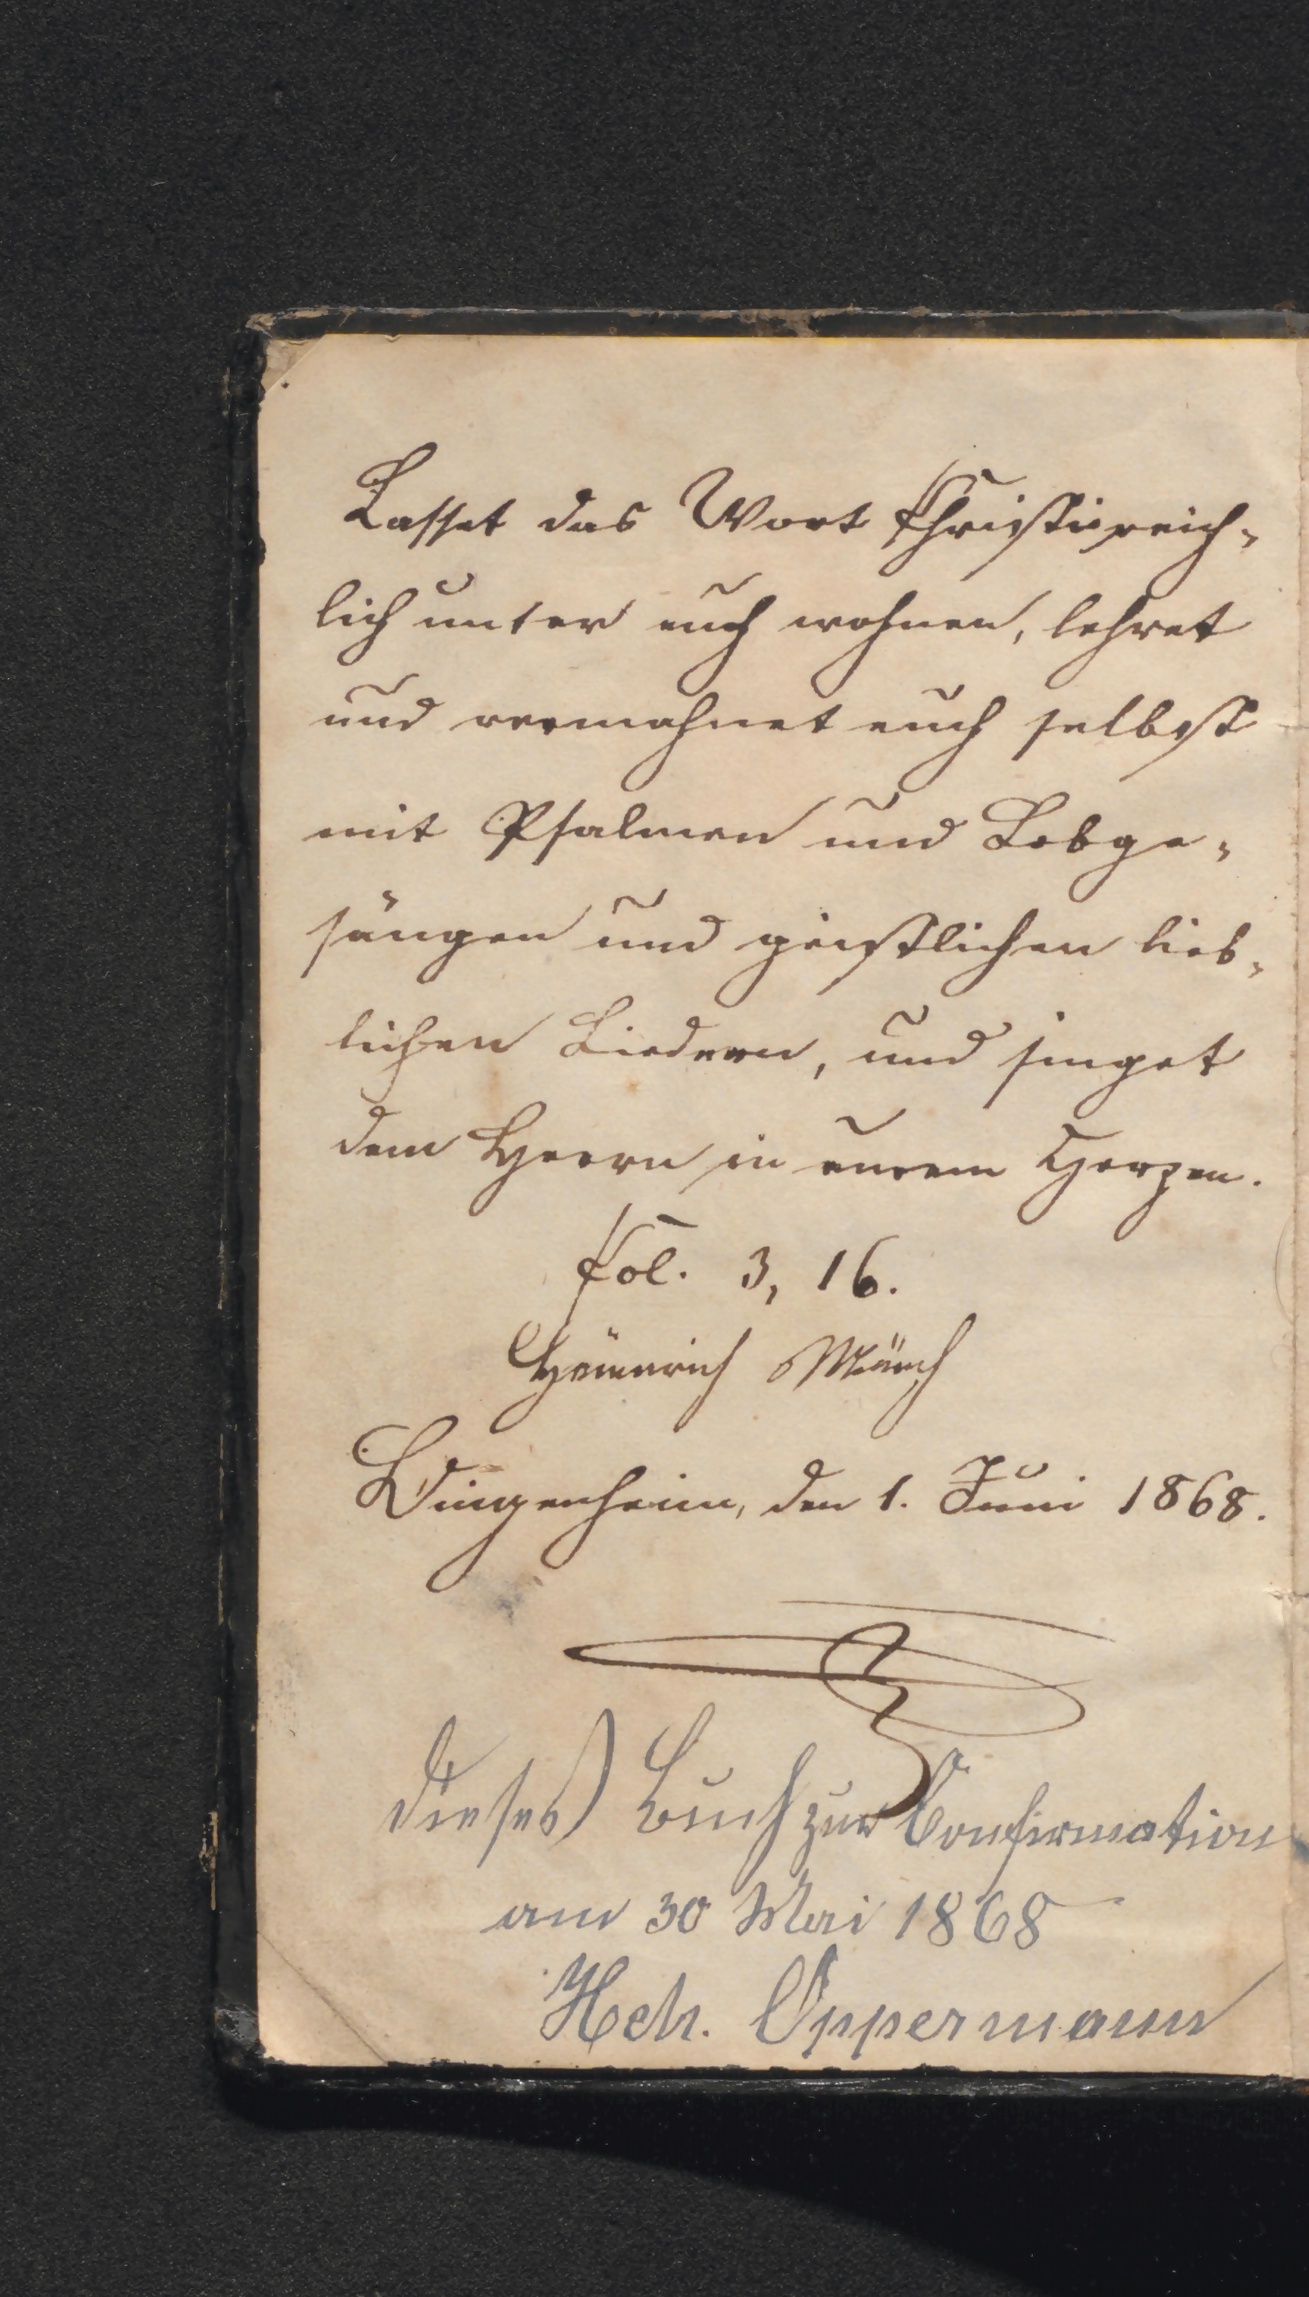 Lasset das Wort Christi reich-
lich unter euch wohnen, lehret
und vermahnet euch selbst
mit Psalmen und Lobge-
sängen und geistlichen lieb-
lichen Liedern, und singet
dem Herrn in eurem Herzen.
Col. 3, 16.
Heinrich Münch
den 1. Juni 1868.
Dieses Buch zur Confirmation
am 30 Mai 1868
Hch. Oppermann